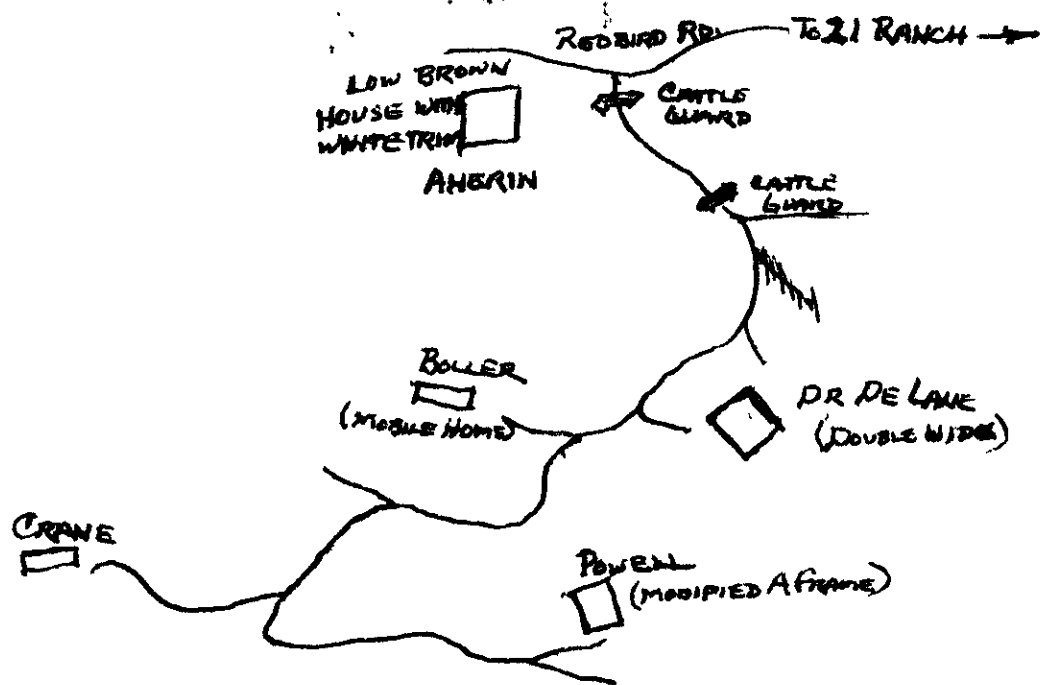 REDBIRD RD.
TO 21 RANCH
LOW BROWN
HOUSE WITH
WHITE TRIM
AHERIN
CATTLE
GUARD
CATTLE
GUARD
BOLLER
(MOBILE HOME)
DR DE LANE
(DOUBLE WIDE)
CRANE
POWELL
(MODIFIED A FRAME)